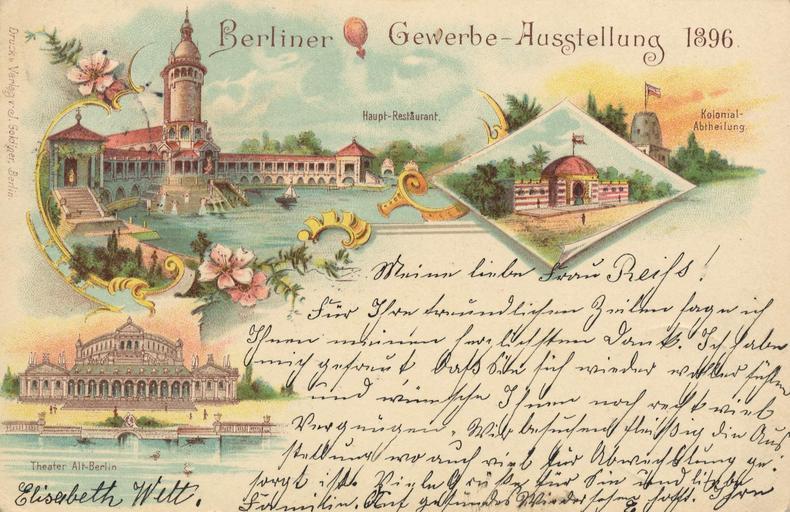 Berliner Gewerbe-Ausstellung 1896.
Druck u Verlag v. J. Goldiger, Berlin
Haupt-Restaurant.
Kolonial-
Abtheilung.
Meine liebe Frau Reifs!
Für Ihre freundlichen Zeilen sage ich
Ihnen meinen herzlichsten Dank. Ich habe
mich gefreut dass Sie sich wieder wohler fühlen
und wünsche Ihnen noch recht viel
Vergnügen. Wir besuchen fleißig die Aus
stellung wo auch viel für Abwechslung ge-
sorgt ist. Viele Grüße für Sie und liebe
Familie. Auf gesundes Wiedersehen hofft. Ihre
Theater Alt-Berlin
Elisabeth Welt.